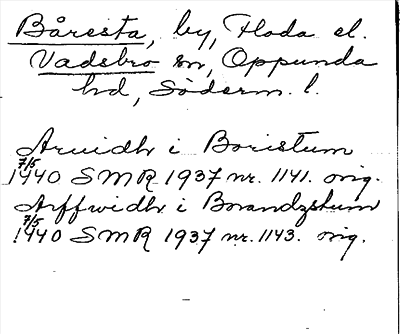 Båresta, by, Floda el.
Vadsbro sn, Oppunda
hd, Söderm. l.
Aruidh i Boristum
7/5 1440 SMR 1937 nr. 1141. orig.
Arffwidh i Borandzstum
7/5 1440 SMR 1937 nr. 1143. orig.